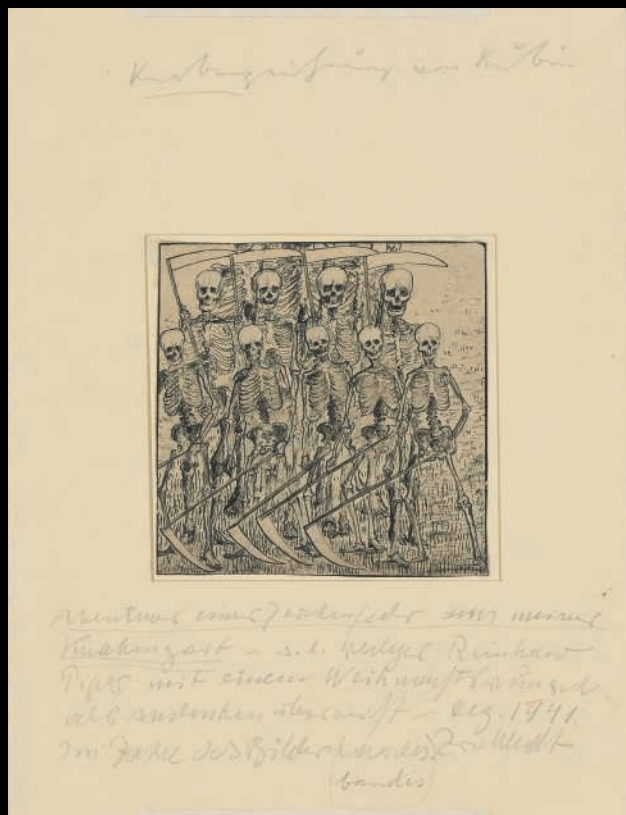 Knabenzeichnung von Kubin
Abenteuer einer Zeichenfeder aus meiner
Knabenzeit – s. l. Verleger Reinhard
Piper mit einem Weihnachtswunsch
als Andenken überreicht – 1941
im Jahre des Bilder
bandes